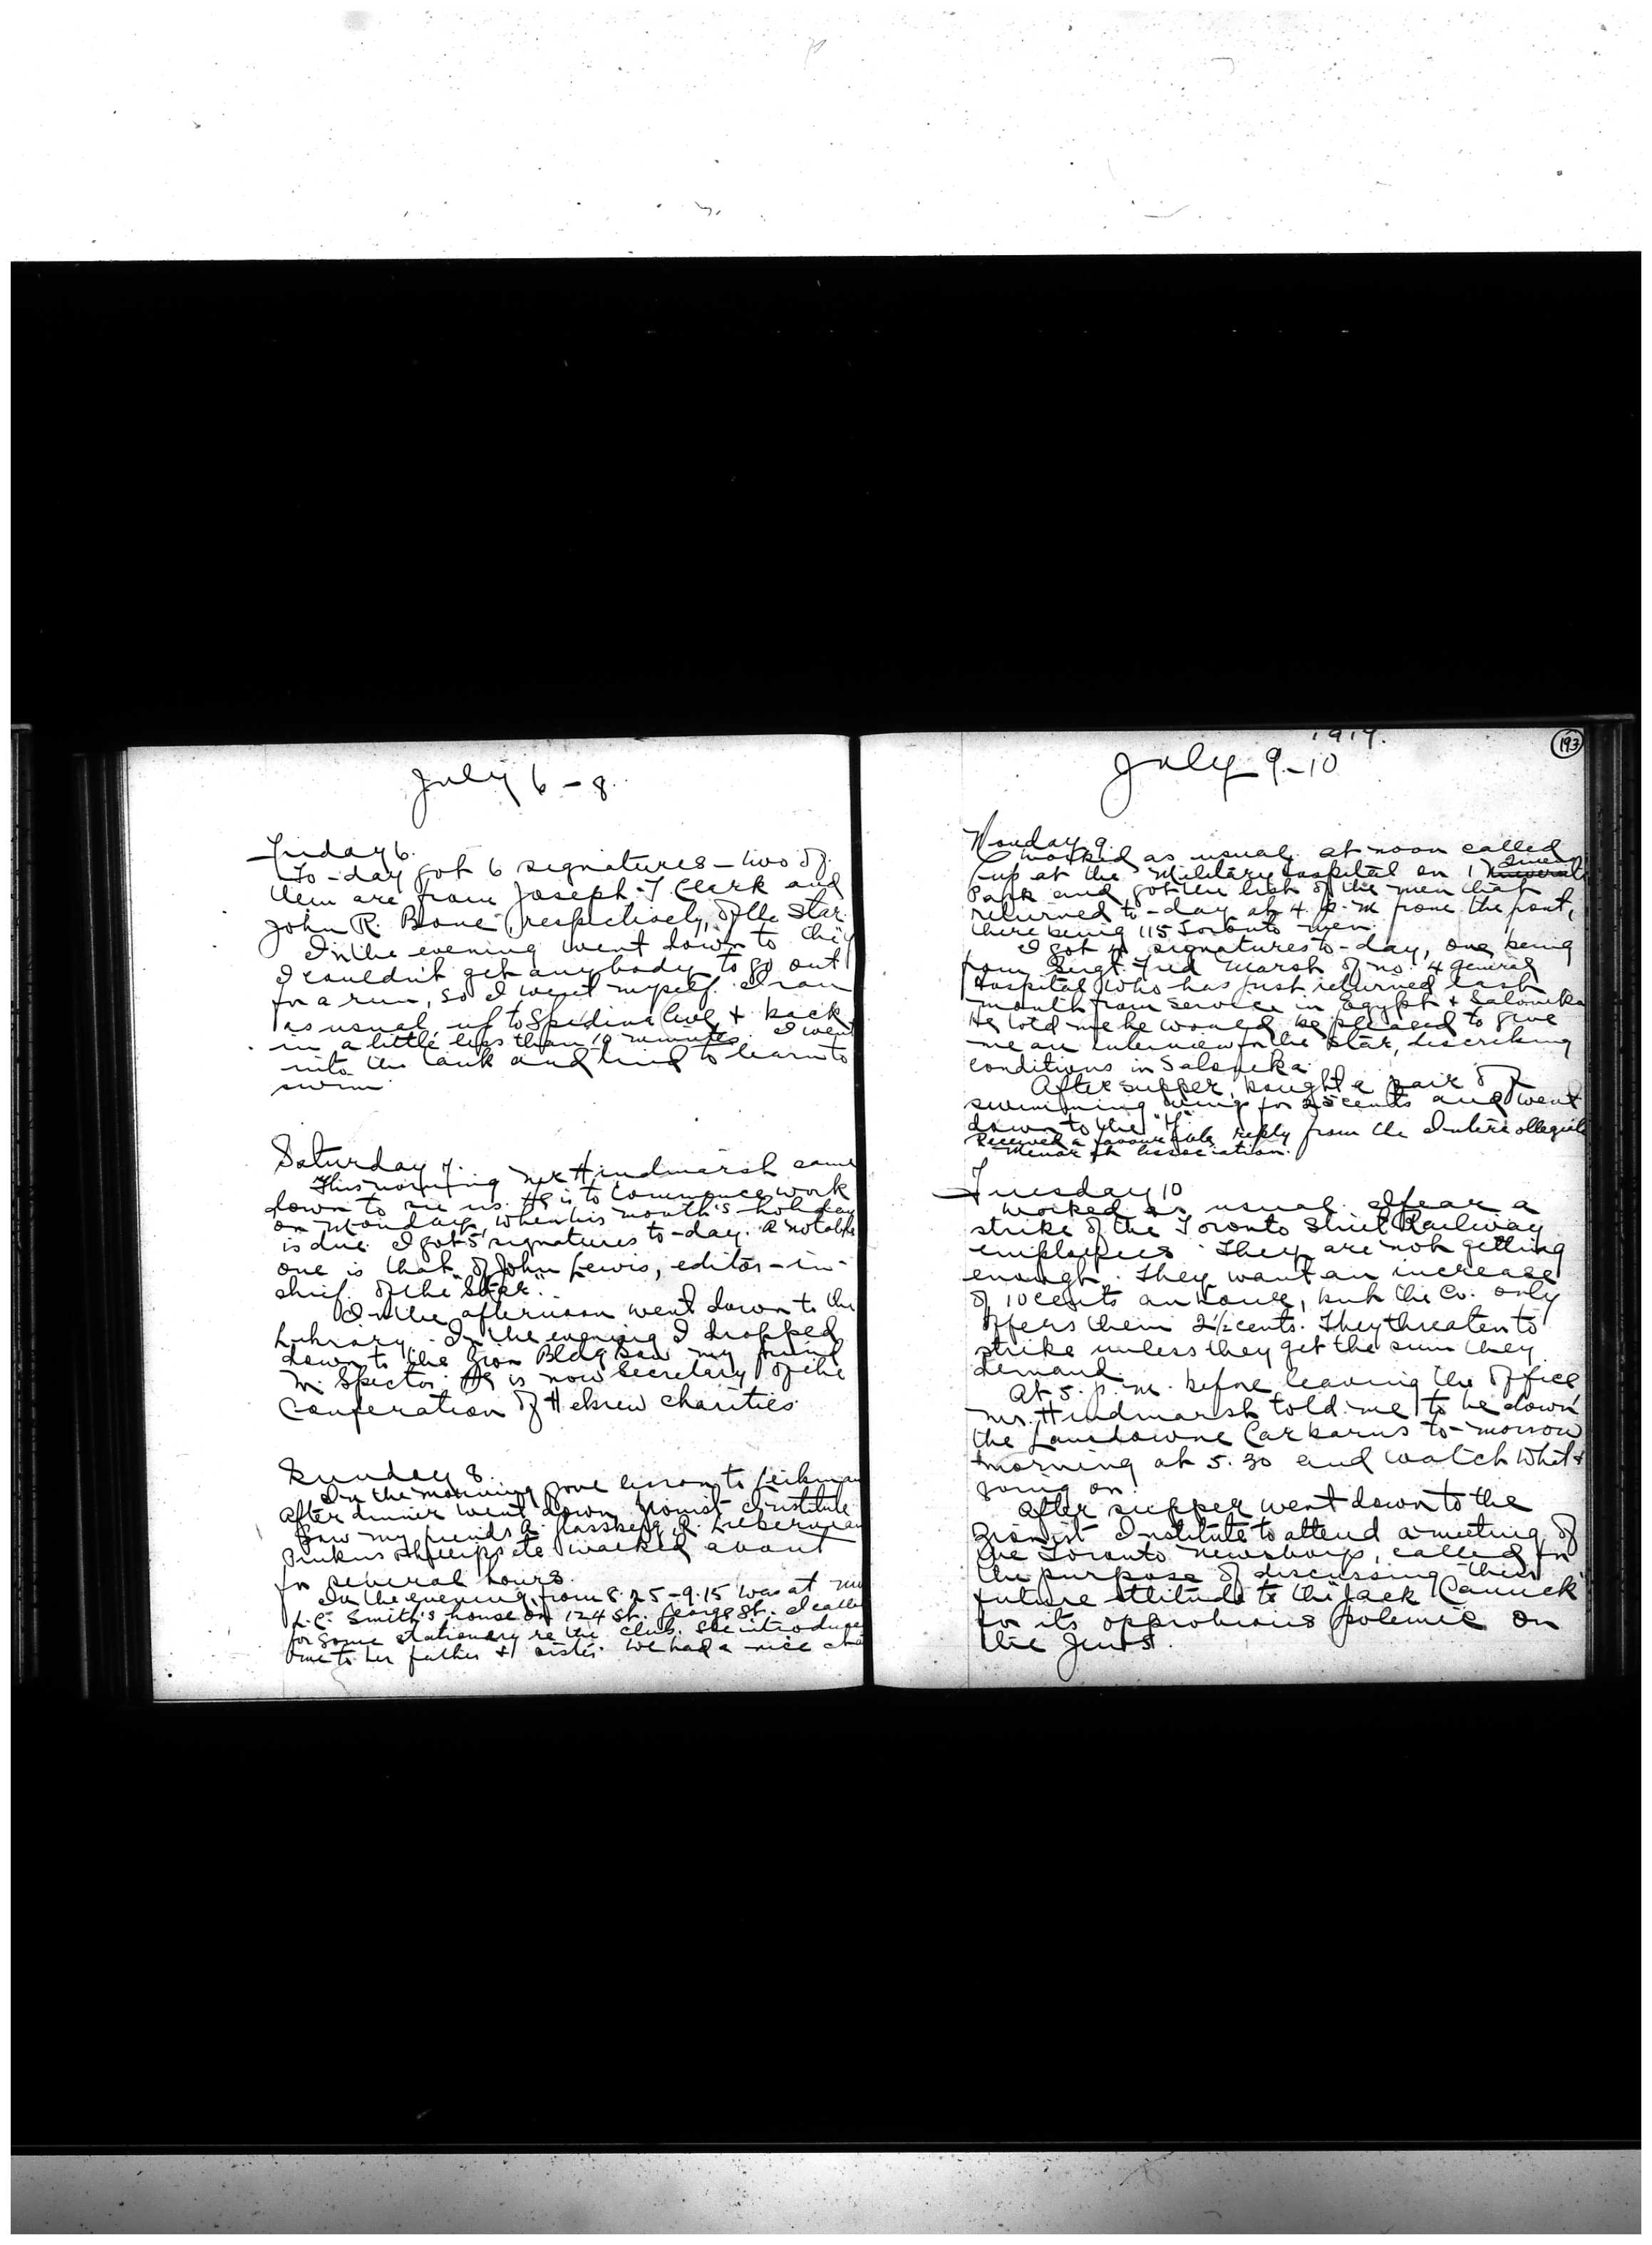 July 6-8.
Friday 6.
To-day got 6 signatures - two of
them are from Joseph T Clark and
John R. Bone, respectively, of the Star.
In the evening went down to the Y
I couldn't get anybody to go out
for a run, so I went myself. I ran
as usual, up to Spadina Ave + back
in a little less than 10 minutes. I went
into the tank and tried to learn to
swim.
Saturday 7.
This morning Mr Hindmarsh came
down to see us. He is to commence work
on Monday, when his month's holiday
is due. I got 5 signatures to-day. A notable
one is that of John Lewis, editor-in-
chief of the "Star".
In the afternoon went down to the
Library. In the evening I dropped
down to the Zion Bldg Saw my friend
M. Spector. He is now Secretary of the
Conferation of Hebrew Charities.
Sunday 8.
In the morning gave lesson to
After dinner went down Zionist Institute
Saw my friends A. Glassberg, R. Lieberman
Pinkus Phillips etc walked about
for several hours.
In the evening, from 8.25-9.15 was at
L.C. Smith's house on 124 St. George St. I called
for some stationary re the club. She introduced
me to her father + sister. We had a nice
1917.
193
July 9-10
Monday 9.
Worked as usual. At noon called
up at the Military Hospital on
Park and got the list of the men that
returned to-day at 4. p.m from the front,
there being 115 Toronto men.
I got signatures to-day, one being
from Sergt. Fred Marsh of No. 4 General
Hospital who has just returned last
month from service in Egypt + Salonika
He told me he would be pleased to give
me an interview for the Star, describing
conditions in Salonika.
After supper, bought a pair of
swimming wings for 25 cents and went
down to the "Y".
Received a favourable reply from the Intercollegiate
Menorah Association.
Tuesday 10
Worked as usual. I fear a
strike of the Toronto Street Railway
employees. They are not getting
enough. They want an increase
of 10 cents an hour, but the Co. only
offers them 2½ cents. They threaten to
strike unless they get the sum they
demand.
At 5. p.m. before leaving the office,
Mr. Hindmarsh told me to be down
the Lansdowne Car barns to-morrow
morning at 5.30 and watch what's
going on.
After supper went down to the
Zionist Institute to attend a meeting of
the Toronto newsboys, called for
the purpose of discussing their
future attitude to the "Jack Canuck"
for its opprobrious polemic on
the Jews.